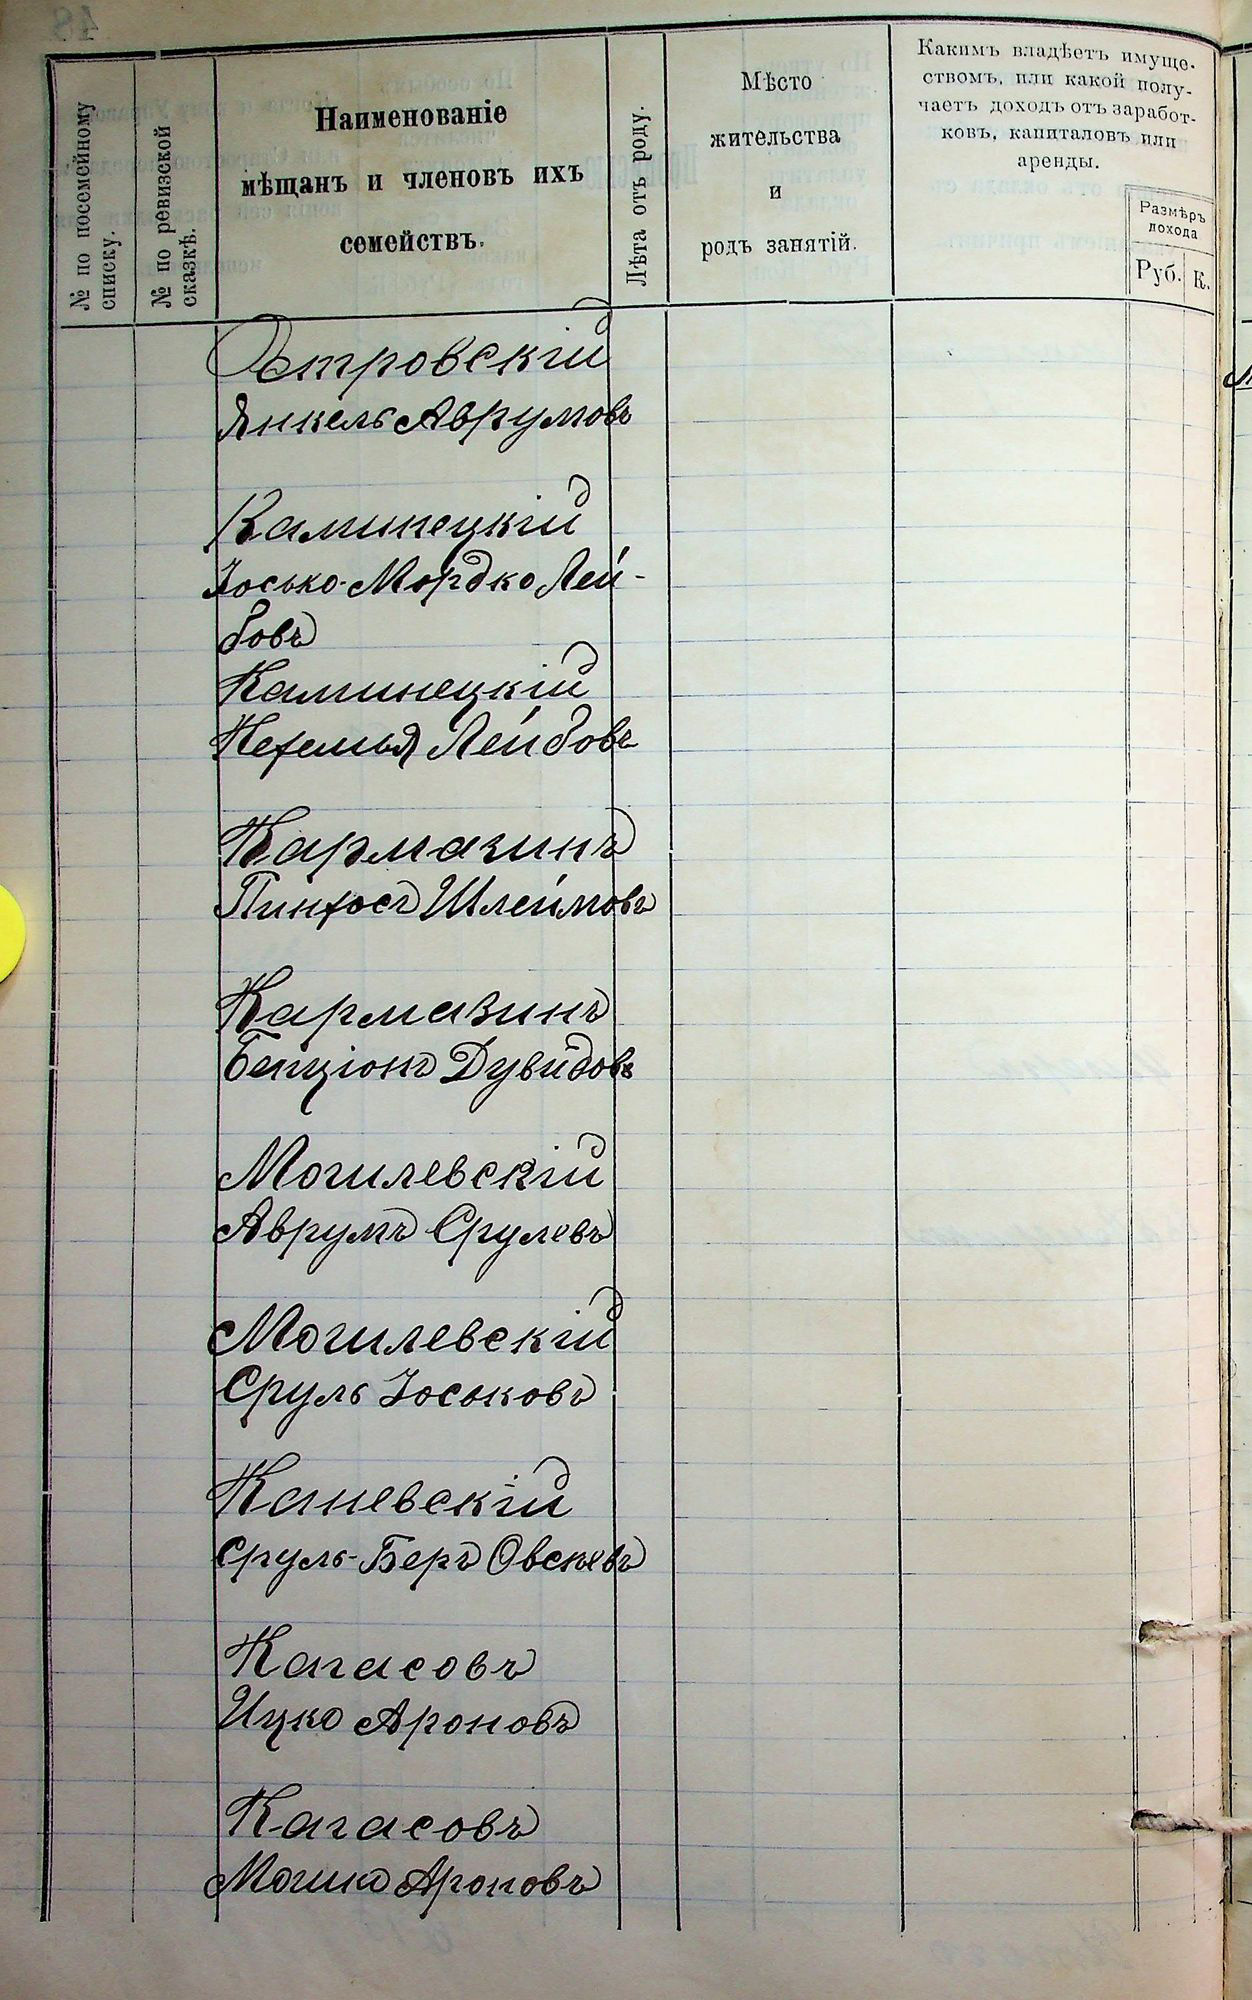 № по посемейному
списку.
№ по ревизской
сказкѣ.
Наименованіе
мѣщанъ и членовъ ихъ
семействъ.
Лѣта отъ роду.
Мѣсто
жительства
и
родъ занятій.
Какимъ владѣетъ имуще-
ствомъ, или какой полу-
чаетъ доходъ отъ заработ-
ковъ, капиталовъ или
аренды.
Размѣръ
дохода
Руб. К.
Островскій
Янкель Аврумовъ
Каминецкій
Іосько-Мордко Лей-
бовъ
Каминецкій
Нехемья Лейбовъ
Кармазинъ
Пинхосъ Шлеймовъ
Кармазинъ
Бенціонъ Дувидовъ
Могилевскій
Аврумъ Срулевъ
Могилевскій
Сруль Іоськовъ
Каневскій
Сруль-Беръ Овсеевъ
Кагасовъ
Ицко Ароновъ
Кагасовъ
Мошко Ароновъ